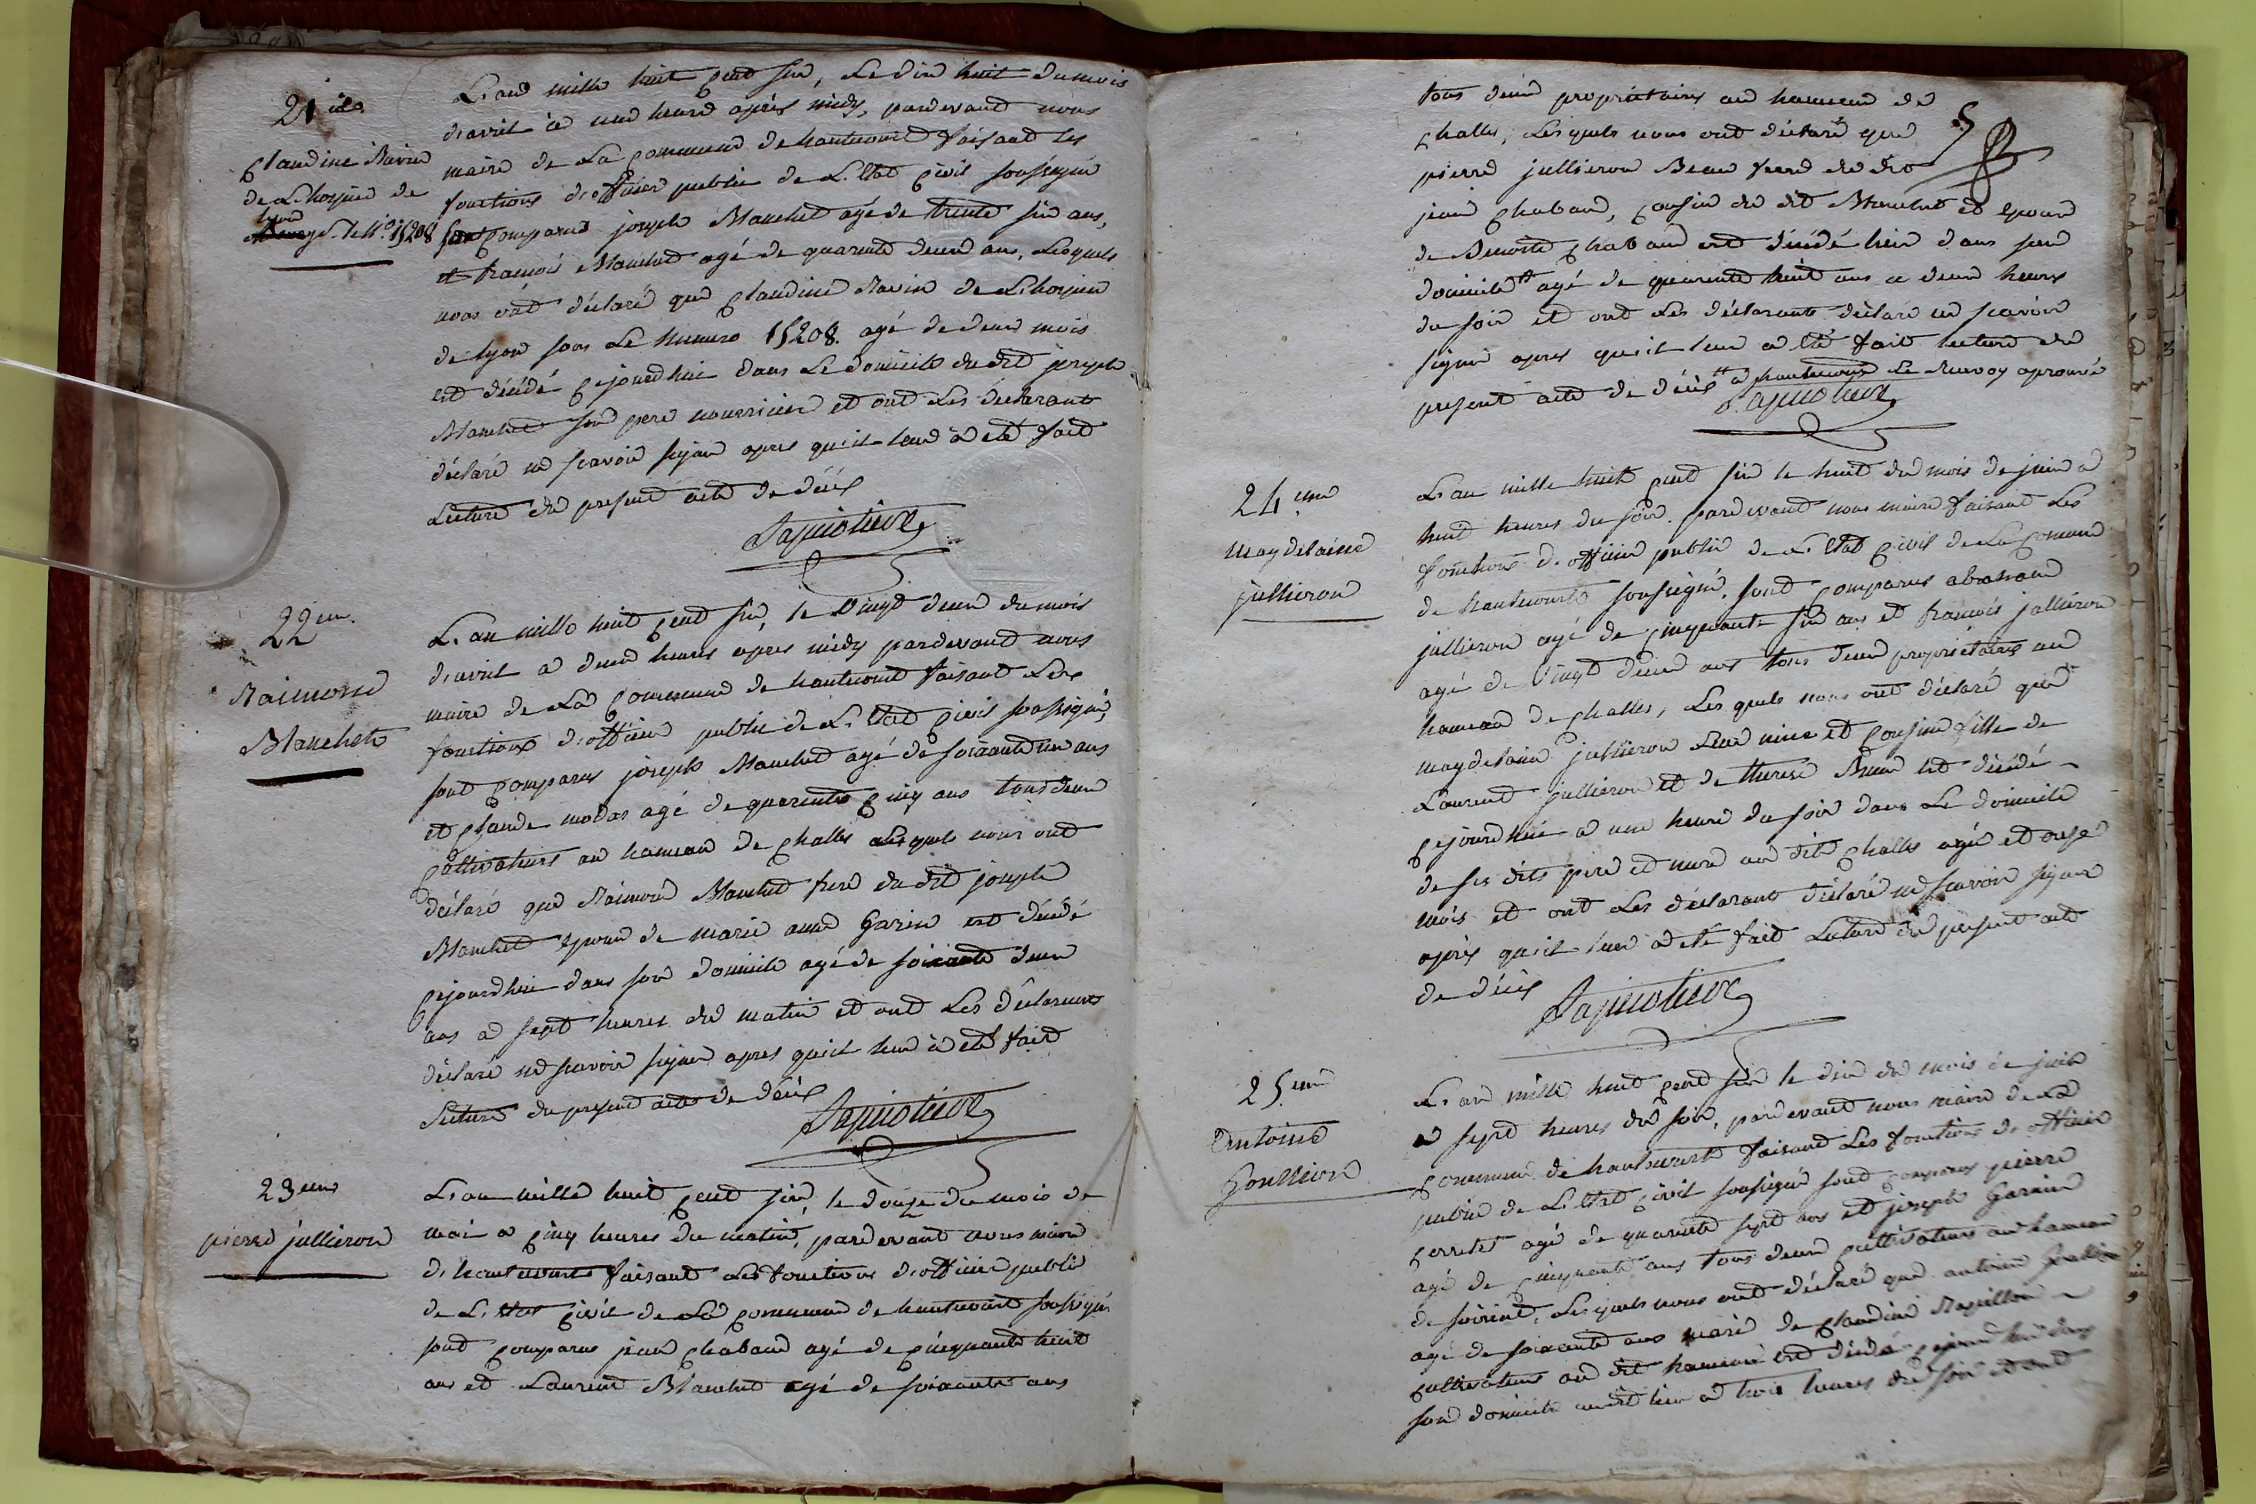 21 me
Claudine Ravin
de L'hospice de
lyon
N.o 15208
L'an mille huit cent six, Le dix huit du mois
d'avril à une heure après midy, pardevant nous
maire de La Commune de hautecourt faisant les
fonctions d'officier public de L'Etat Civil soussigné
sont Comparus joseph Blanchet agé de trente six ans,
et francois Blanchet agé de quarente deux ans, Lesquels
nous ont déclaré que Claudine Ravin de L'hospice
de lyon sous Le numero 15208. agé de deux mois
est décédé Cejourdhui dans Le domicile du dit joseph
Blanchet son pere nourricier et ont Les déclarant
déclaré ne scavoir signer apres qu'il leur a été fait
Lecture du present acte de décès
22 eme.
Raimond
Blanchet
L'an mille huit cent six, le Vingt deux du mois
d'avril a deux heures apres midy pardevant nous
maire de La Commune de hautecourt faisant Les
fonctions d'officier public de L'Etat Civil soussigné,
sont Comparus joseph Blanchet agé de soixante un ans
et Claude modas agé de quarente Cinq ans tous deux
Cultivateurs au hameau de Challes Lesquels nous ont
déclaré que Raimond Blanchet frere du dit joseph
Blanchet epoux de marie anne Garin est décédé
Cejourdhui dans son domicile agé de soixante deux
ans a sept heures du matin et ont Les déclarants
déclaré ne scavoir signer apres qu'il leur a été fait
Lecture du present acte de décès
23 eme
pierre jullieron
L'an mille huit Cent six, le douze du mois de
mai a Cinq heures du matin, pardevant nous maire
d'hautecourt faisant Les fonctions d'officier public
de L'Etat Civil de La Commune de hautecourt soussigné
sont Comparus jean Chaband agé de Cinquante huit
ans et Laurent Blanchet agé de soixante ans
5
tous deux proprietaires au hameau de
Challes, Lesquels nous ont déclaré que
pierre jullieron Beau frere du dit
jean Chaband, Cousin du dit Blanchet et epoux
de Benoite Chaband est décédé hier dans son
domicile agé de quarente huit ans a deux heures
du soir et ont Les déclarants déclaré ne scavoir
signer apres qu'il leur a été fait lecture du
present acte de décès a hautecourt Le Renvoy aprouvé
24 eme
magdelaine
jullieron
L'an mille huit cent six le huit du mois de juin a
huit heures du soir. pardevant nous maire faisant Les
fonctions d'officier public de L'Etat Civil de La Comune
de hautecourt soussigné. sont Comparus abraham
jullieron agé de Cinquante six ans et francois jullieron
agé de Vingt deux ans tous deux propriétaires au
hameau de Challes, Lesquels nous ont déclaré que
magdelaine jullieron Leur niece et Cousine fille de
Laurent jullieron et de therese Brun est décédé
Cejourdhui a une heure du soir dans Le domicile
de ses dits pere et mere au dit Challes agé et onze
mois et ont Les déclarant déclaré ne scavoir signer
après qu'il leur a été fait Lecture du present acte
de décès
25 eme
Antoine
L'an mille huit cent six le dix du mois de juin
a sept heures du soir, pardevant nous maire de La
Commune de hautecourt faisant Les fonctions d'officier
public de L'Etat Civil soussigné sont Comparus pierre
perretet agé de quarente sept ans et joseph Garnier
agé de Cinquante ans tous deux Cultivateurs au hameau
de Lesquels nous ont déclaré que antoine
agé de soixante ans marié de Claudine
Cultivateur au dit hameau est décédé Cejourdhui dans
son domicile a trois heures du soir et ont